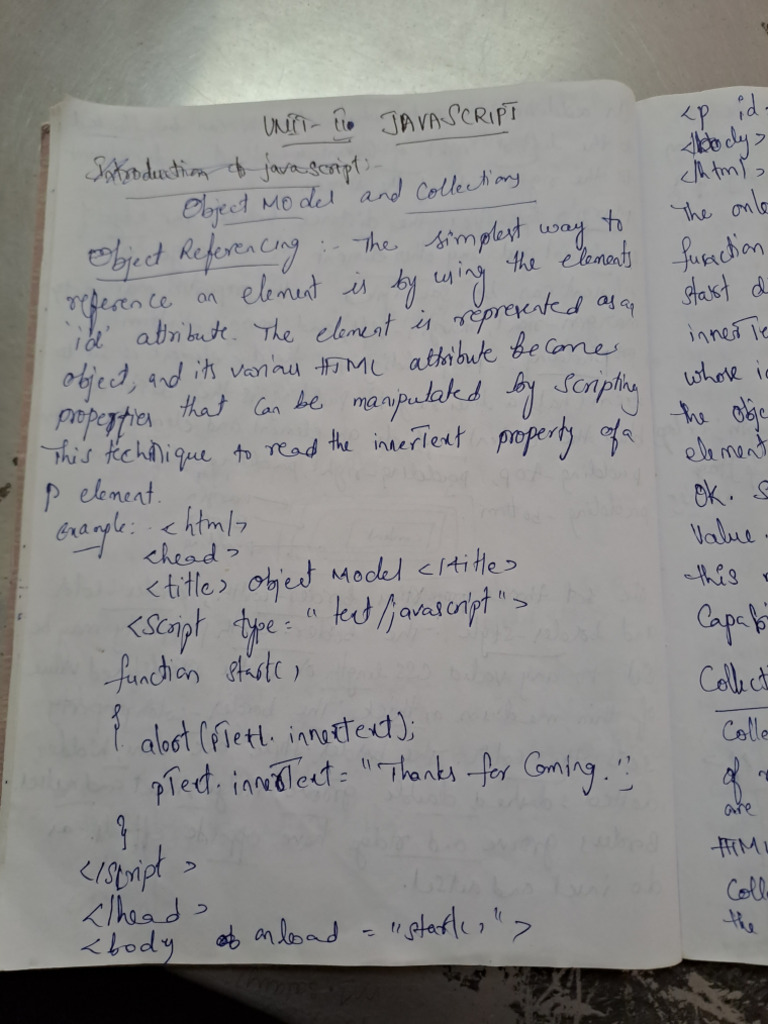 UNIT- II. JAVASCRIPT
Introduction of javascript:-
Object Model and Collections
Object Referencing :- The simplest way to
reference an element is by using the elements
'id' attribute. The element is represented as an
object, and its various HTML attribute become
properties that can be manipulated by scripting
This technique to read the innerText property of a
p element.
Example: <html>
<head>
<title> Object Model </title>
<script type = "text/javascript">
function start()
{ alert (pText. innerText);
pText. innerText = "Thanks for Coming.";
}
</script >
</head>
<body onload = "start()">
<p id=
</body>
</html>
The onlo
function
start d
innerTe
whose id
the obje
element
OK. S
Value.
this m
Capabi
Collecti
Colle
of r
are
HTML
Colle
the